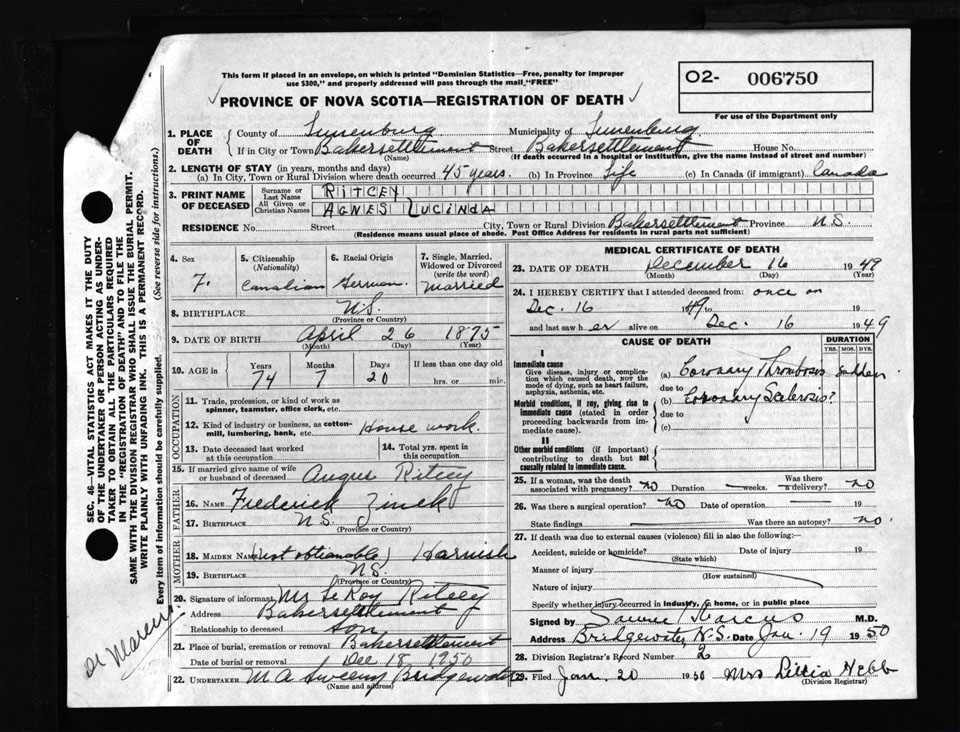 This form if placed in an envelope, on which is printed "Dominion Statistics—Free, penalty for improper
use $300," and properly addressed will pass through the mail "FREE"
O2- 006750
PROVINCE OF NOVA SCOTIA—REGISTRATION OF DEATH
For use of the Department only
1. PLACE OF DEATH { County of Lunenburg Municipality of Lunenburg
If in City or Town Bakersettlement Street Bakersettlement House No.
(Name) (If death occurred in a hospital or institution, give the name instead of street and number)
2. LENGTH OF STAY (in years, months and days)
(a) In City, Town or Rural Division where death occurred 45 years. (b) In Province Life (c) In Canada (if immigrant) Canada
3. PRINT NAME OF DECEASED { Surname or Last Name RITCEY
All Given or Christian Names AGNES LUCINDA
RESIDENCE No. Street City, Town or Rural Division Bakersettlement Province N.S.
(Residence means usual place of abode. Post Office Address for residents in rural parts not sufficient)
4. Sex F.
5. Citizenship (Nationality) Canadian
6. Racial Origin German
7. Single, Married, Widowed or Divorced (write the word) Married
8. BIRTHPLACE N.S.
(Province or Country)
9. DATE OF BIRTH April 26 1875
(Month) (Day) (Year)
10. AGE in { Years Months Days If less than one day old
74 7 20 hrs. or min.
OCCUPATION
11. Trade, profession, or kind of work as spinner, teamster, office clerk, etc.
12. Kind of industry or business, as cotton-mill, lumbering, bank, etc. House work.
13. Date deceased last worked at this occupation
14. Total yrs. spent in this occupation
15. If married give name of wife or husband of deceased Angus Ritcey
FATHER
16. NAME Frederick Zinck
17. BIRTHPLACE N.S.
(Province or Country)
MOTHER
18. MAIDEN NAME (not obtionable) Harnish
19. BIRTHPLACE N.S.
(Province or Country)
20. Signature of informant Mr LeRoy Ritcey
Address Bakersettlement
Relationship to deceased son
21. Place of burial, cremation or removal Bakersettlement
Date of burial or removal Dec 18, 1950
22. UNDERTAKER M A Sweeny Bridgewater
(Name and address)
MEDICAL CERTIFICATE OF DEATH
23. DATE OF DEATH December 16 1949
(Month) (Day)
24. I HEREBY CERTIFY that I attended deceased from: once on
Dec. 16 1949 to
and last saw her alive on Dec. 16 1949
CAUSE OF DEATH
DURATION
YRS. MOS. DYS.
I
Immediate cause
Give disease, injury or complication which caused death, NOT the mode of dying, such as heart failure, asphyxia, asthenia, etc.
(a) Coronary Thrombosis sudden
due to
Morbid conditions, if any, giving rise to immediate cause (stated in order proceeding backwards from immediate cause).
(b) Coronary Sclerosis?
due to
(c)
II
Other morbid conditions (if important) contributing to death but not causally related to immediate cause.
25. If a woman, was the death associated with pregnancy? no Duration weeks. Was there a delivery? no
26. Was there a surgical operation? no Date of operation 19
State findings Was there an autopsy? no.
27. If death was due to external causes (violence) fill in also the following:—
Accident, suicide or homicide? Date of injury 19
(State which)
Manner of injury
(How sustained)
Nature of injury
Specify whether injury occurred in industry, in home, or in public place
Signed by Marcus M.D.
Address Bridgewater, N.S. Date Jan. 19 1950
28. Division Registrar's Record Number 2
29. Filed Jan. 20 1950 Mrs Lillia Hebb
(Division Registrar)
SEC. 46—VITAL STATISTICS ACT MAKES IT THE DUTY
OF THE UNDERTAKER OR PERSON ACTING AS UNDER-
TAKER TO OBTAIN ALL THE PARTICULARS REQUIRED
IN THE "REGISTRATION OF DEATH" AND TO FILE THE
SAME WITH THE DIVISION REGISTRAR WHO SHALL ISSUE THE BURIAL PERMIT.
WRITE PLAINLY WITH UNFADING INK. THIS IS A PERMANENT RECORD.
Every item of information should be carefully supplied. (See reverse side for instructions.)
Dr Marcus.